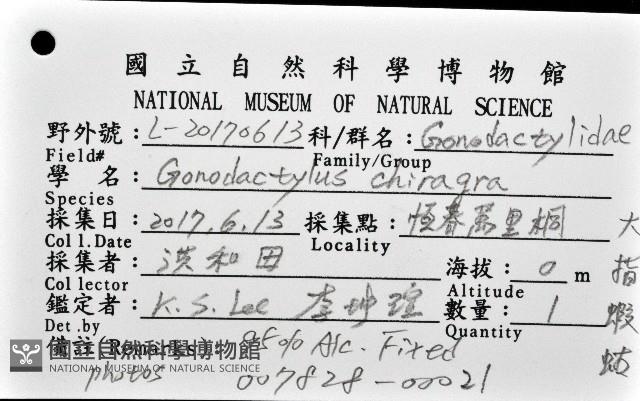 國立自然科學博物館
NATIONAL MUSEUM OF NATURAL SCIENCE
野外號：L-20170613 科/群名：Gonodactylidae
Field# Family/Group
學 名：Gonodactylus chiragra
Species
採集日：2017.6.13 採集點：恆春萬里桐
Coll.Date Locality
採集者：洪和田 海拔：0 m
Collector Altitude
鑑定者：K.S. Lee 李坤瑄 數量：1
Det.by Quantity
大指蝦蛄
備註(Remarks) 95% Alc. Fixed
國立自然科學博物館
NATIONAL MUSEUM OF NATURAL SCIENCE
photos 007828-00021